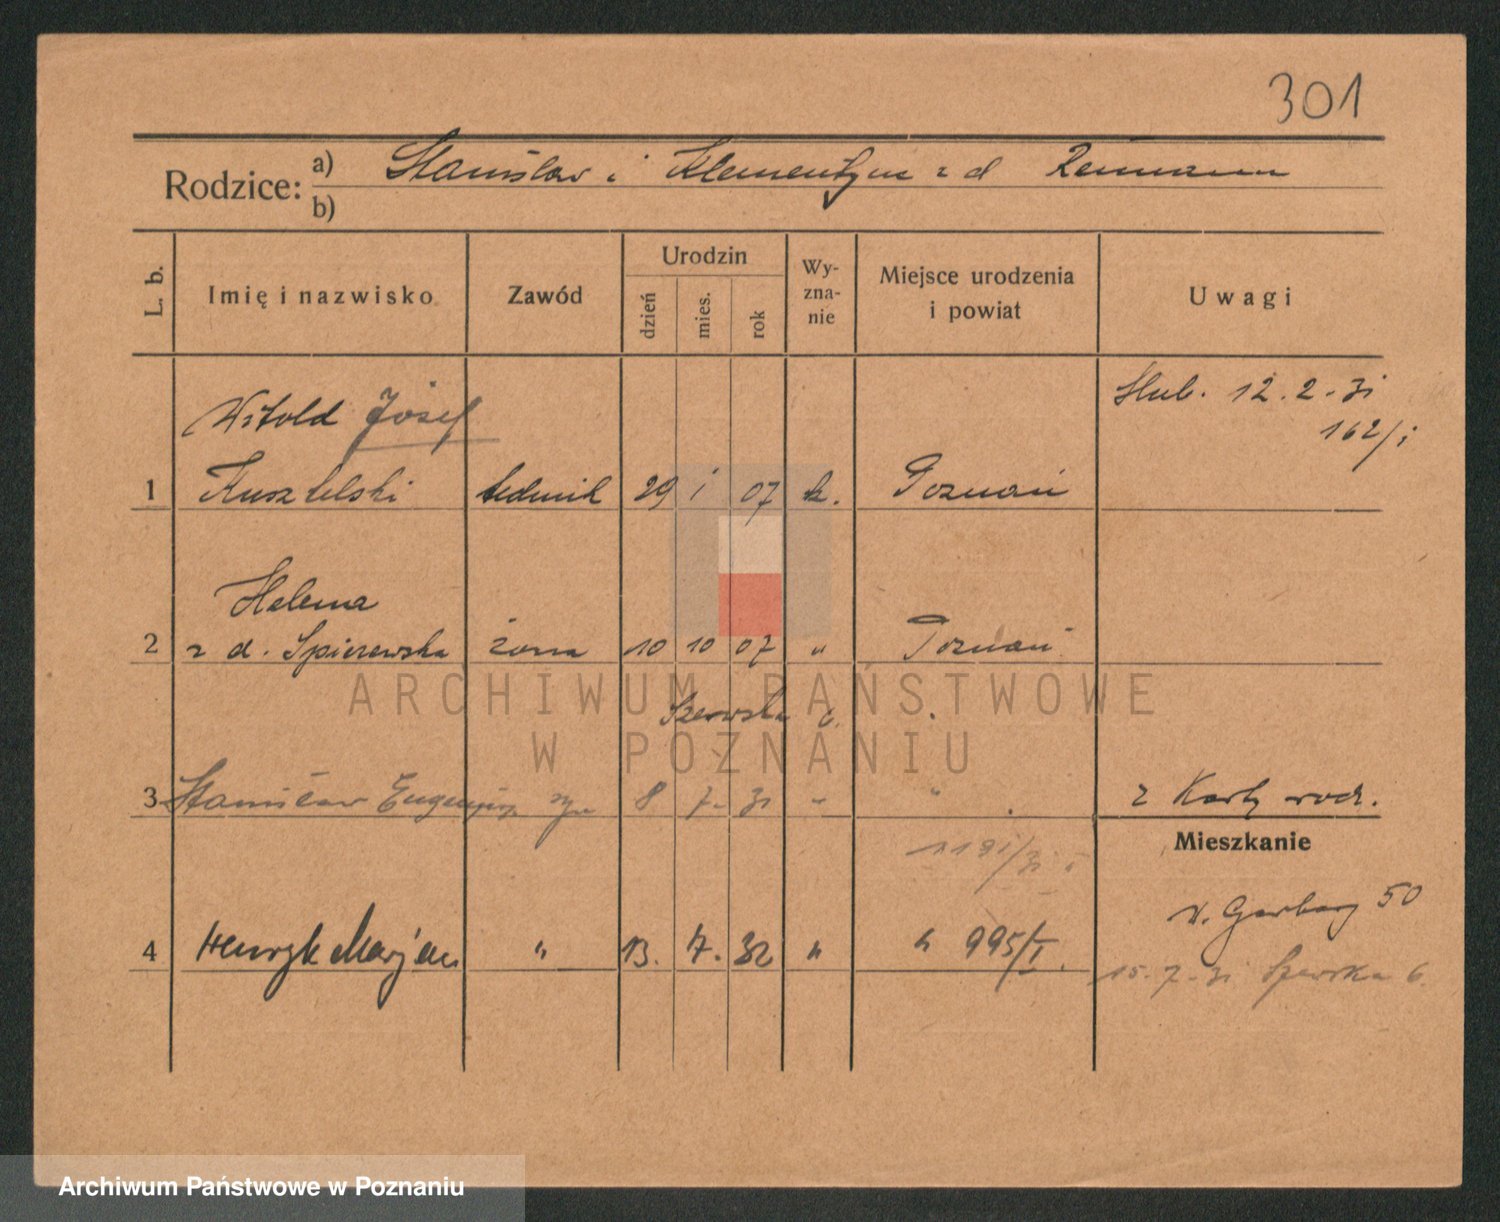 301
Rodzice: a) Stanisław i Klementyna z d
b)
L. b.
Imię i nazwisko
Zawód
Urodzin
dzień
mies.
rok
Wy-
zna-
nie
Miejsce urodzenia
i powiat
Uwagi
Ślub. 12.2-31
162/i
Witold Józef
1 Kusztelski technik 29 i 07 k. Poznań
Helena
2 z d. Spiżewska żona 10 10 07 " Poznań
Szewska 6.
3 Stanisław Eugeniusz syn 8 7- 31 " "
z Karty rodz.
1191/31
Mieszkanie
W. Garbary 50
4 Henryk Marjan " 13. 7. 32 " " 995/I.
15-7-31 Szewska 6.
ARCHIWUM PAŃSTWOWE
W POZNANIU
Archiwum Państwowe w Poznaniu